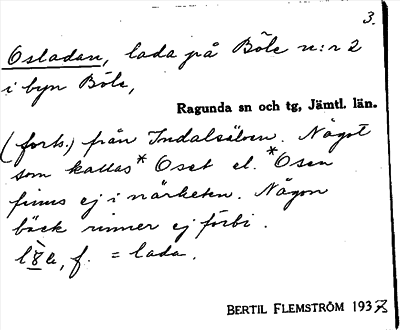 3.
Osladan, lada på Böle n:r 2
i byn Böle,
Ragunda sn och tg, Jämtl. län.
(forts.) från Indalsälven. Något
som kallas *Oset el. *Osen
finns ej i närheten. Någon
bäck rinner ej förbi.
f. = lada.
BERTIL FLEMSTRÖM 1937